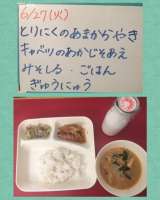 6/27(火)
とりにくのあまからやき
キャベツのあかじそあえ
みそしる・ごはん
ぎゅうにゅう